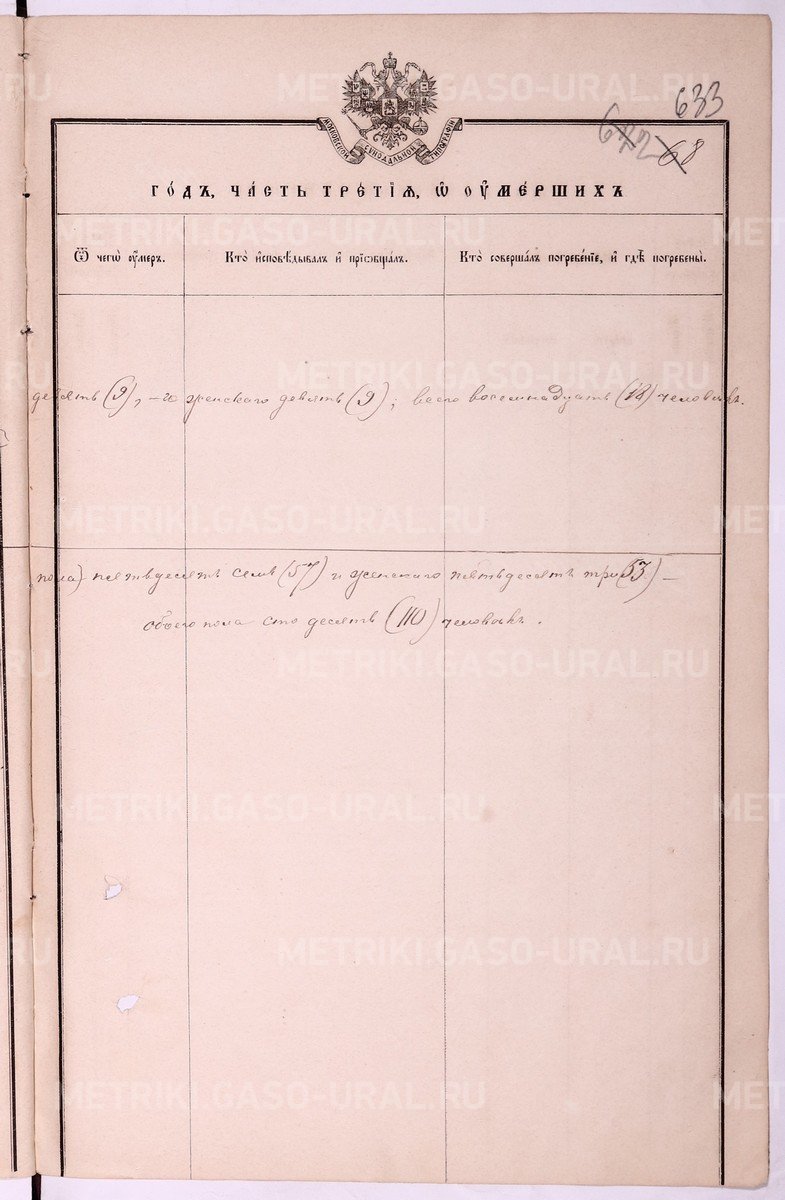 633
642
68
МОСКОВСКОЙ СѴНОДАЛЬНОЙ ТИПОГРАФІИ
ГО́ДЪ, ЧА́СТЬ ТРЕ́ТІѦ, Ѡ҆ ОУ҆МЕ́РШИХЪ
Ѿ чегѡ̀ оу҆́меръ.
Кто̀ и҆сповѣ́дывалъ и҆ прїѡбща́лъ.
Кто̀ соверша́лъ погребе́нїе, и҆ гдѣ̀ погребены̀.
девять (9), – и женскаго девять (9); всего восемнадцать (18) человѣкъ.
пола) пятьдесятъ семь (57) и женскаго пятьдесятъ три (53) –
обоего пола сто десять (110) человѣкъ.
METRIKI.GASO-URAL.RU